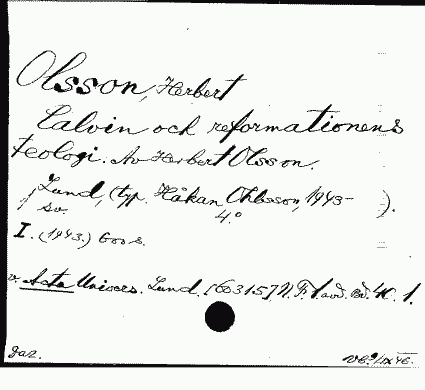 Olsson, Herbert
Calvin och reformationens
teologi. Av Herbert Olsson.
Lund, (typ. Håkan Ohlsson, 1943- ).
8v. 4°
I. (1943.) 600 s.
v. Acta Univers. Lund. [60315] N. F. 1 avd. Bd. 40. 1.